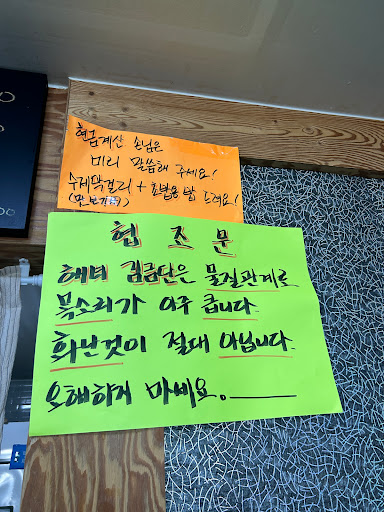 현금계산 손님은
미리 말씀해 주세요!
수제막걸리 + 초밥용 밥 드려요!
(맛보기)
협조문
해녀 김금단은 물질관계로
목소리가 아주 큽니다.
화난것이 절대 아닙니다.
오해하게 마세요.